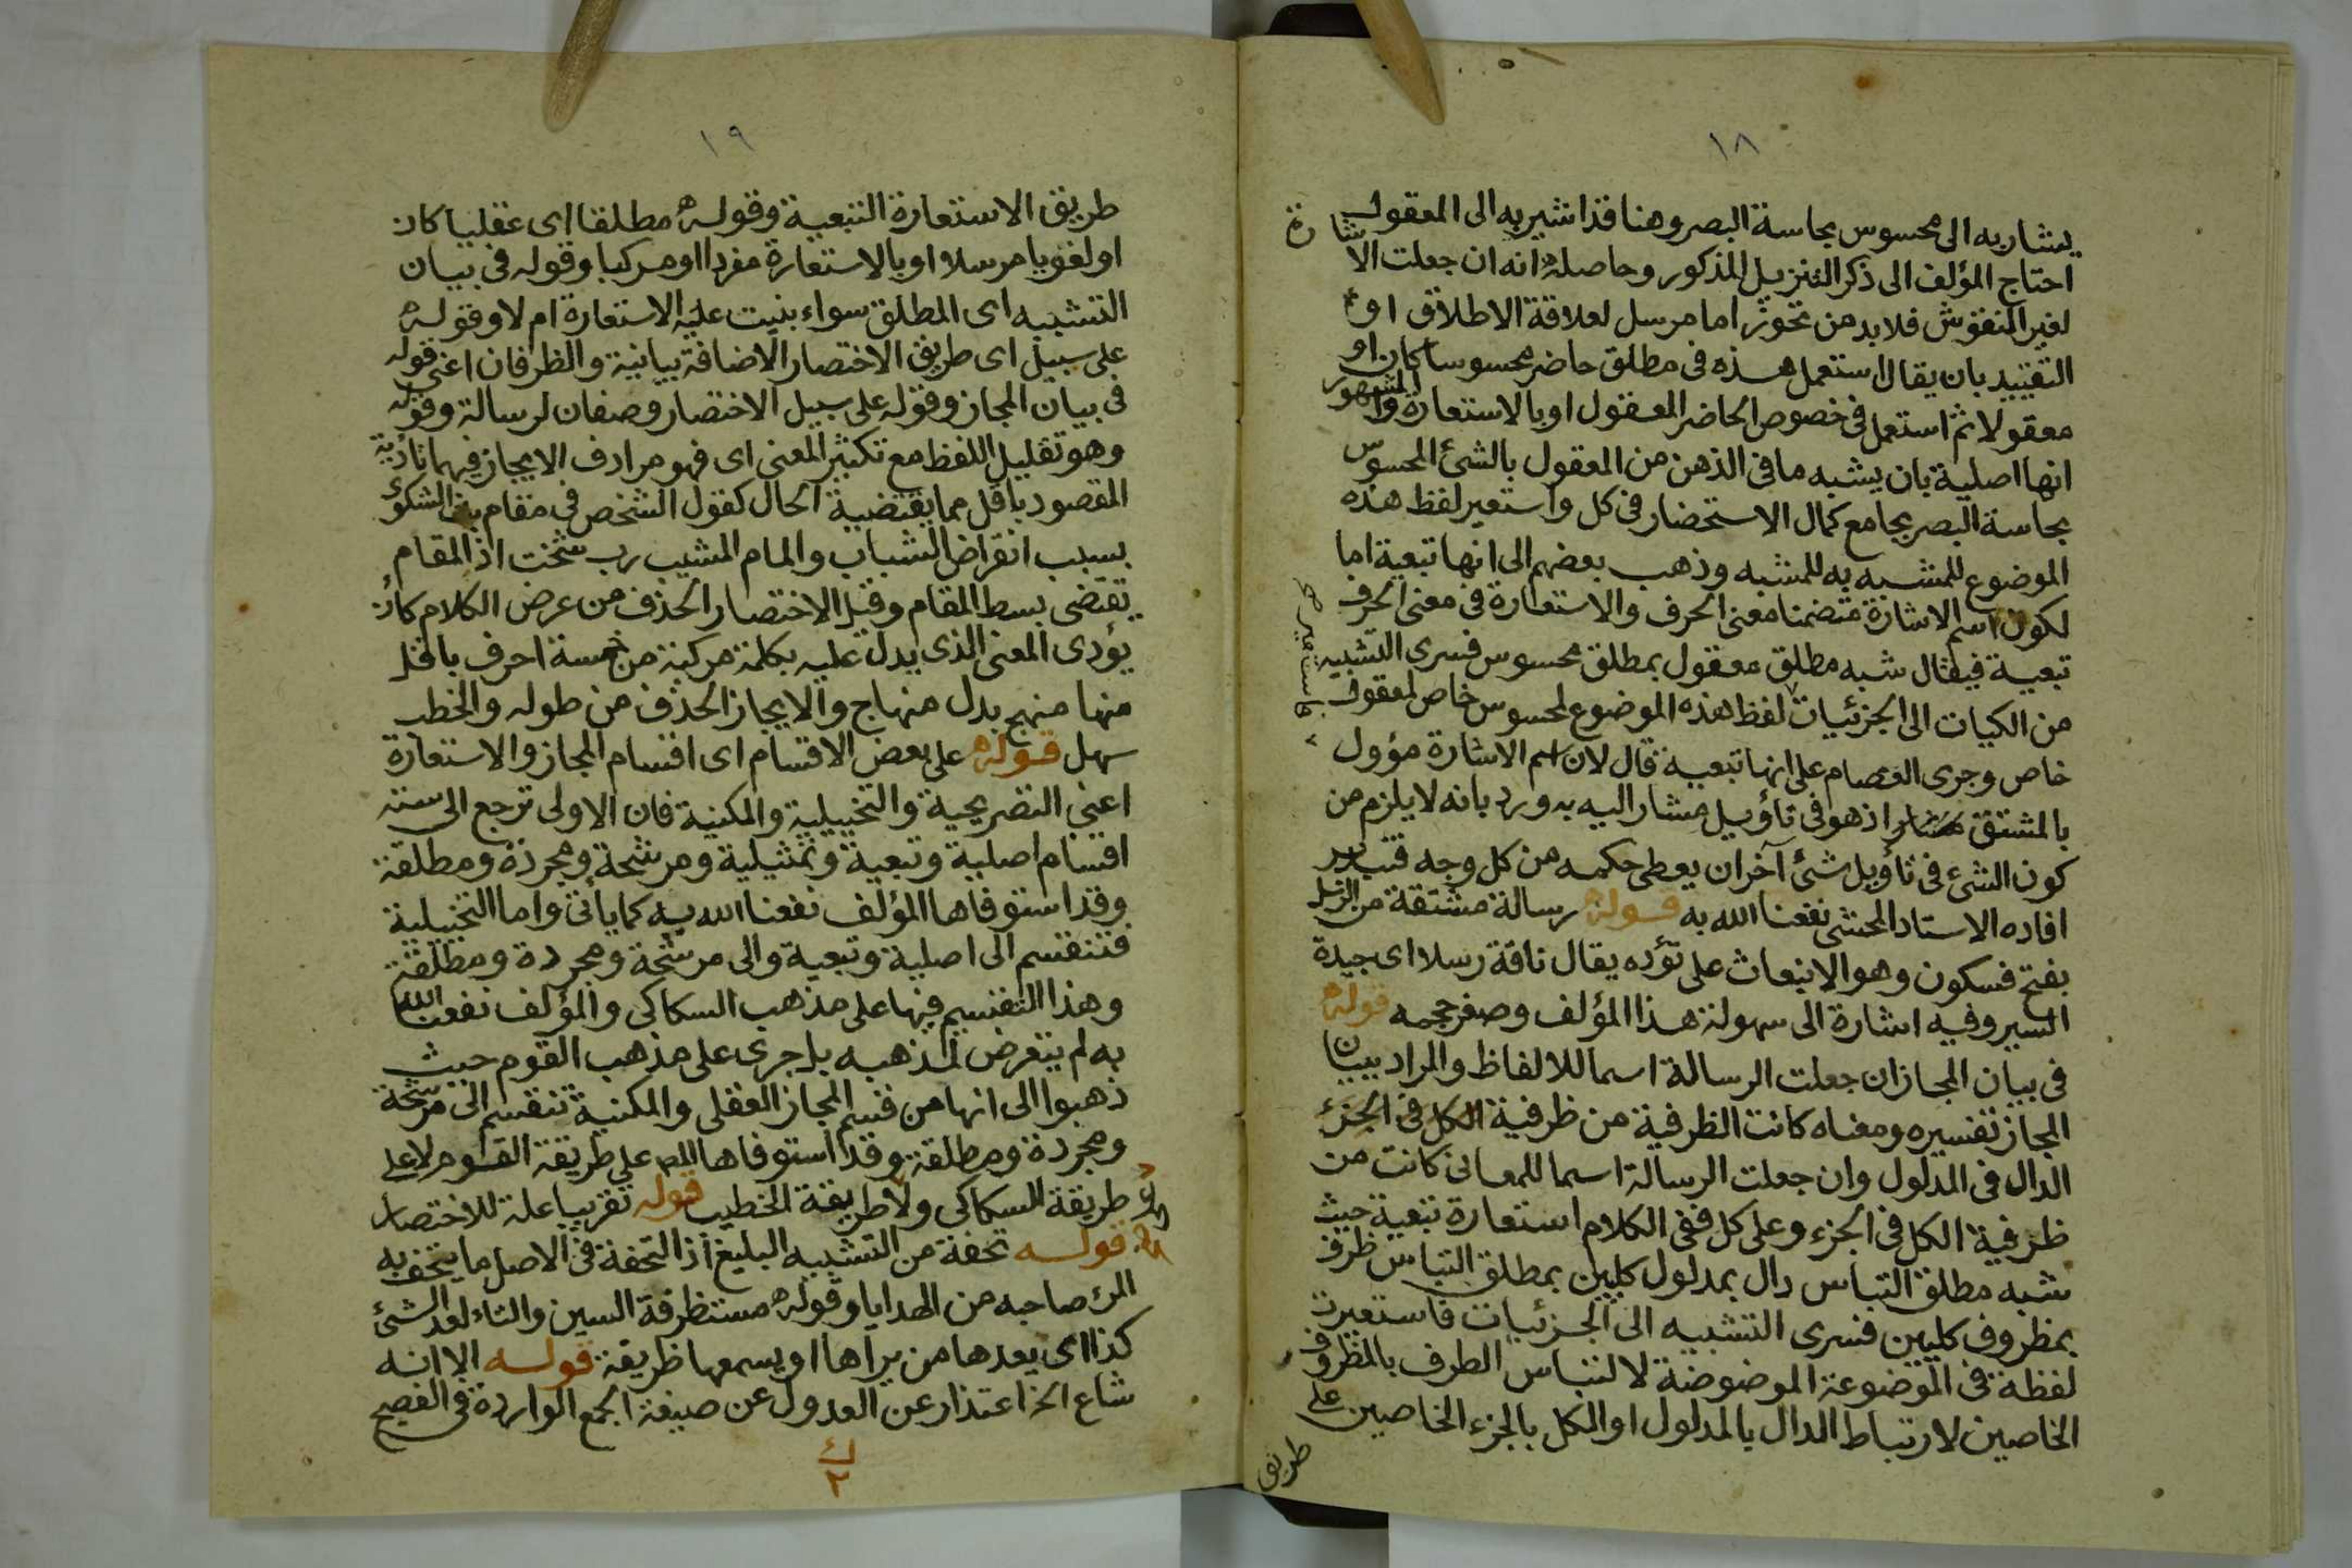 ١٨
يشار به الى محسوس بحاسة البصر وهنا قد اشير به الى المعقول
احتاج المؤلف الى ذكر التنزيل المذكور وحاصله انه ان جعلت الاشارة
لغير المنقوش فلا بد من تجوز اما مرسل لعلاقة الاطلاق او
التقييد بان يقال استعمل هذه فى مطلق حاضر محسوسا كان او
معقولا ثم استعمل فى خصوص الحاضر المعقول او بالاستعارة والمشهور
انها اصلية بان يشبه ما فى الذهن من المعقول بالشئ المحسوس
بحاسة البصر بجامع كمال الاستحضار فى كل واستعير لفظ هذه
الموضوع للمشبه به للمشبه وذهب بعضهم الى انها تبعية اما
لكون اسم الاشارة متضمنا معنى الحرف والاستعارة فى معنى الحرف
تبعية فيقال شبه مطلق معقول بمطلق محسوس فسرى التشبيه
من الكيات الى الجزئيات لفظ هذه الموضوع لمحسوس خاص لمعقول
فاستعير صح
خاص وجرى العصام على انها تبعية قال لان اسم الاشارة مؤول
بالمشتق اذ هو فى تاؤيل مشار اليه به ورد بانه لا يلزم من
كون الشئ فى تاؤيل شئ آخر ان يعطى حكمه من كل وجه فتدبر
افاده الاستاد المحشى نفعنا الله به قوله رسالة مشتقة من الرسل
بفتح فسكون وهو الانبعاث على تؤده يقال ناقة رسلا اى جيدة
السير وفيه اشارة الى سهولة هذا المؤلف وصغر حجمه قوله
فى بيان المجاز ان جعلت الرسالة اسما للالفاظ والمراد ببيان
المجاز تفسيره ومعناه كانت الظرفية من ظرفية الكل فى الجزء
الدال فى المدلول وان جعلت الرسالة اسما للمعانى كانت من
ظرفية الكل فى الجزء وعلى كل ففى الكلام استعارة تبعية حيث
شبه مطلق التباس دال بمدلول كليين بمطلق التباس ظرف
بمظروف كليين فسرى التشبيه الى الجزئيات فاستعيرت
لفظة فى الموضوعة الموضوضة لالتباس الظرف بالمظروف
الخاصين لارتباط الدال بالمدلول او الكل بالجزء الخاصين على
طريق
١٩
طريق الاستعارة التبعية وقوله مطلقا اى عقليا كان
او لغويا مرسلا او بالاستعارة مفردا او مركبا وقوله فى بيان
التشبيه اى المطلق سواء بنيت عليه الاستعارة ام لا وقوله
على سبيل اى طريق الاختصار الاضافة بيانية والظرفان اعنى قوله
فى بيان المجاز وقوله على سبيل الاختصار وصفان لرسالة وقوله
وهو تقليل اللفظ مع تكثير المعنى اى فهو مرادف الايجاز فيهما تادية
المقصود باقل مما يقتضية الحال كقول الشخص فى مقام بث الشكوى
بسبب انقراض الشباب والمام المشيب رب شخت اذ المقام
يقتضى بسط المقام وقيل الاختصار الحذف من عرض الكلام كأن
يؤدى المعنى الذى يدل عليه بكلمة مركبة من خمسة احرف باقل
منها منهج بدل منهاج والايجاز الحذف من طوله والخطب
سهل قوله على بعض الاقسام اى اقسام المجاز والاستعارة
اعنى التصريحية والتخييلية والمكنية فان الاولى ترجع الى ستة
اقسام اصلية وتبعية وتمثيلية ومرشحة ومجردة ومطلقة
وقد استوفاها المؤلف نفعنا الله به كما يأتى واما التخييلية
فتنقسم الى اصلية وتبعية والى مرشحة ومجردة ومطلقة
وهذا التقسيم فيها على مذهب السكاكى والمؤلف نفعنا الله
به لم يتعرض لمذهبه بل جرى على مذهب القوم حيث
ذهبوا الى انها من قسم المجاز العقلى والمكنية تنقسم الى مرشحة
ومجردة ومطلقة وقد استوفاها المص على طريقة القوم لا على
طريقة السكاكى ولا طريقة الخطيب قوله تقريبا علة للاختصار
قوله تحفة من التشبيه البليغ اذ التحفة فى الاصل ما يتحف به
المرء صاحبه من الهدايا وقوله مستظرفة السين والتاء لعد الشئ
كذا اى يعدها من يراها او يسمعها ظريفة قوله الا انه
شاع الخ اعتذار عن العدول عن صيغة الجمع الواردة فى الفصيح
٢